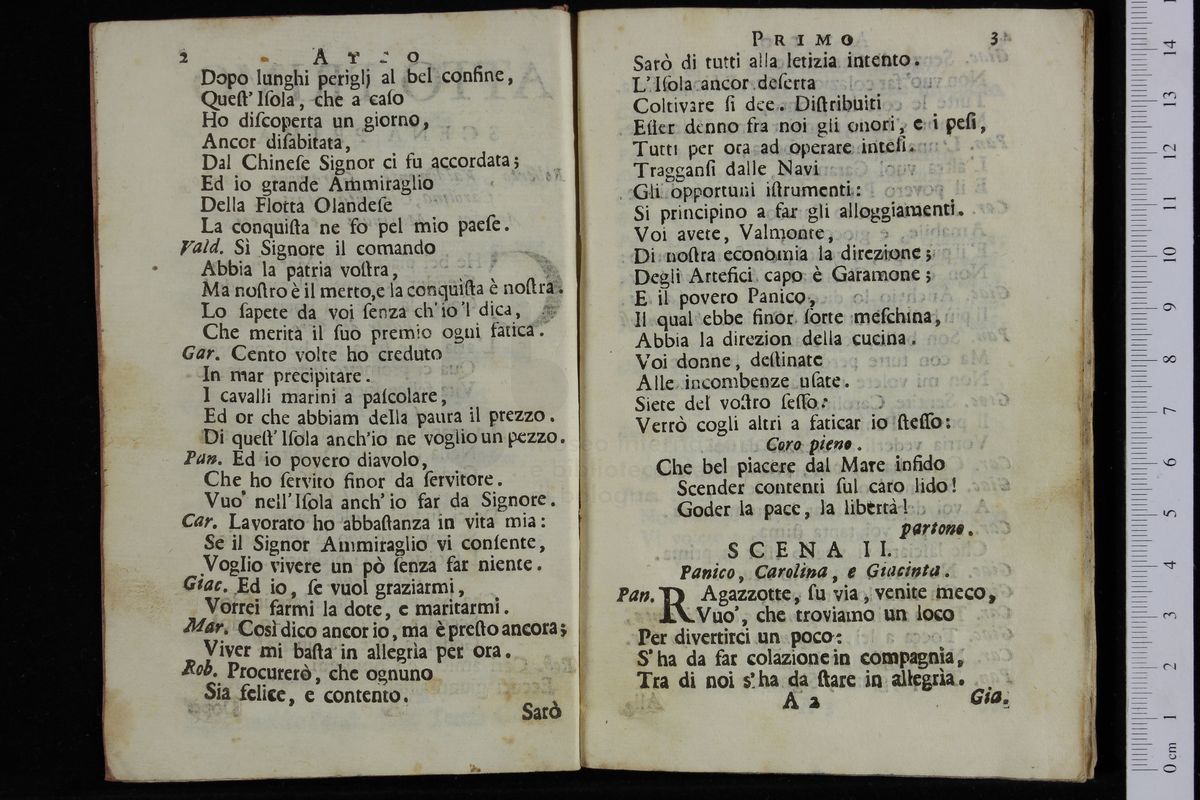 2 ATTO
Dopo lunghi periglj al bel confine,
Queſt' Iſola, che a caſo
Ho diſcoperta un giorno,
Ancor diſabitata,
Dal Chineſe Signor ci fu accordata;
Ed io grande Ammiraglio
Della Flotta Olandeſe
La conquiſta ne fo pel mio paeſe.
Vald. Sì Signore il comando
Abbia la patria voſtra,
Ma noſtro è il merto, e la conquiſta è noſtra.
Lo ſapete da voi ſenza ch'io'l dica,
Che merita il ſuo premio ogni fatica.
Gar. Cento volte ho creduto
In mar precipitare.
I cavalli marini a paſcolare,
Ed or che abbiam della paura il prezzo.
Di queſt' Iſola anch'io ne voglio un pezzo.
Pan. Ed io povero diavolo,
Che ho ſervito finor da ſervitore.
Vuo' nell'Iſola anch'io far da Signore.
Car. Lavorato ho abbaſtanza in vita mia:
Se il Signor Ammiraglio vi conſente,
Voglio vivere un pò ſenza far niente.
Giac. Ed io, ſe vuol graziarmi,
Vorrei farmi la dote, e maritarmi.
Mar. Così dico ancor io, ma è preſto ancora;
Viver mi baſta in allegrìa per ora.
Rob. Procurerò, che ognuno
Sia felice, e contento.
Sarò
PRIMO 3
Sarò di tutti alla letizia intento.
L'Iſola ancor deſerta
Coltivare ſi dee. Diſtribuiti
Eſſer denno fra noi gli onori, e i peſi,
Tutti per ora ad operare inteſi.
Tragganſi dalle Navi
Gli opportuni iſtrumenti:
Si principino a far gli alloggiamenti.
Voi avete, Valmonte,
Di noſtra economia la direzione;
Degli Artefici capo è Garamone;
E il povero Panico,
Il qual ebbe finor ſorte meſchina,
Abbia la direzion della cucina.
Voi donne, deſtinate
Alle incombenze uſate.
Siete del voſtro ſeſſo:
Verrò cogli altri a faticar io ſteſſo:
Coro pieno.
Che bel piacere dal Mare infido
Scender contenti ſul caro lido!
Goder la pace, la libertà!
partono.
SCENA II.
Panico, Carolina, e Giacinta.
Pan. RAgazzotte, ſu via, venite meco,
Vuo', che troviamo un loco
Per divertirci un poco:
S'ha da far colazione in compagnìa,
Tra di noi s'ha da ſtare in allegrìa.
A 2 Gia.